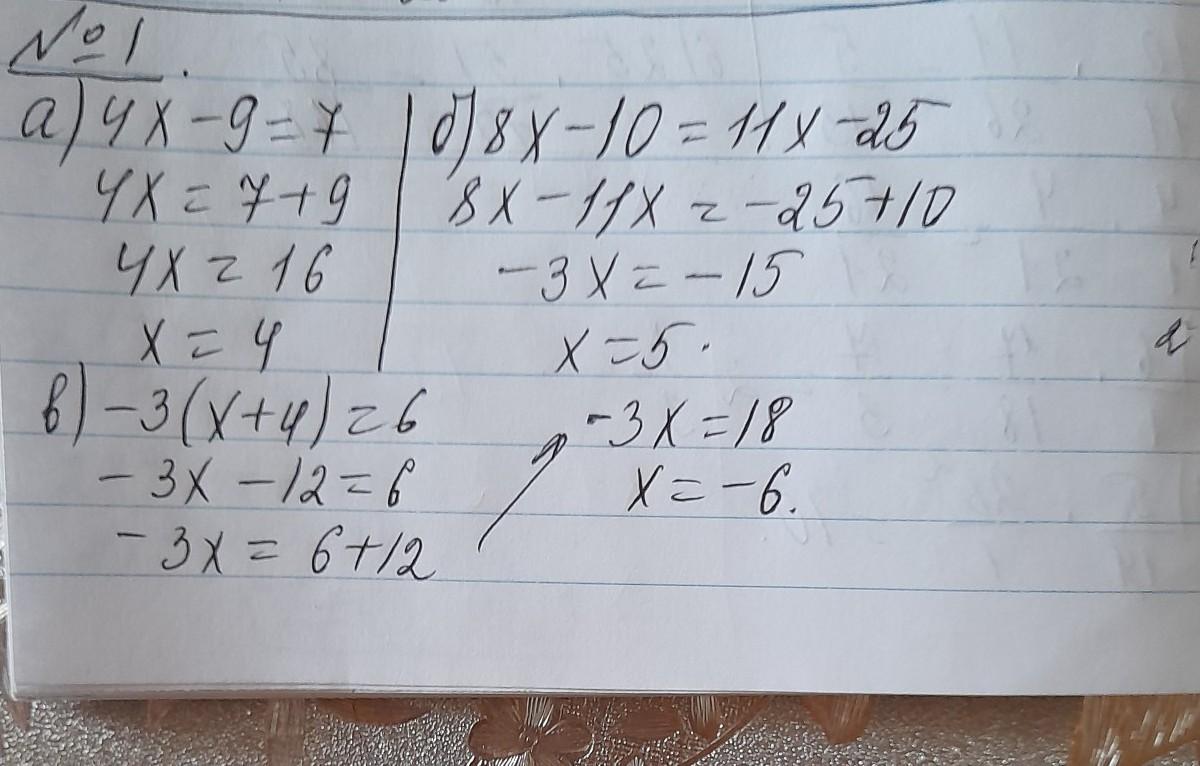 №1.
а) 4x-9=7
4x=7+9
4x=16
x=4
б) 8x-10=11x-25
8x-11x=-25+10
-3x=-15
x=5.
в) -3(x+4)=6
-3x-12=6
-3x=6+12
-3x=18
x=-6.